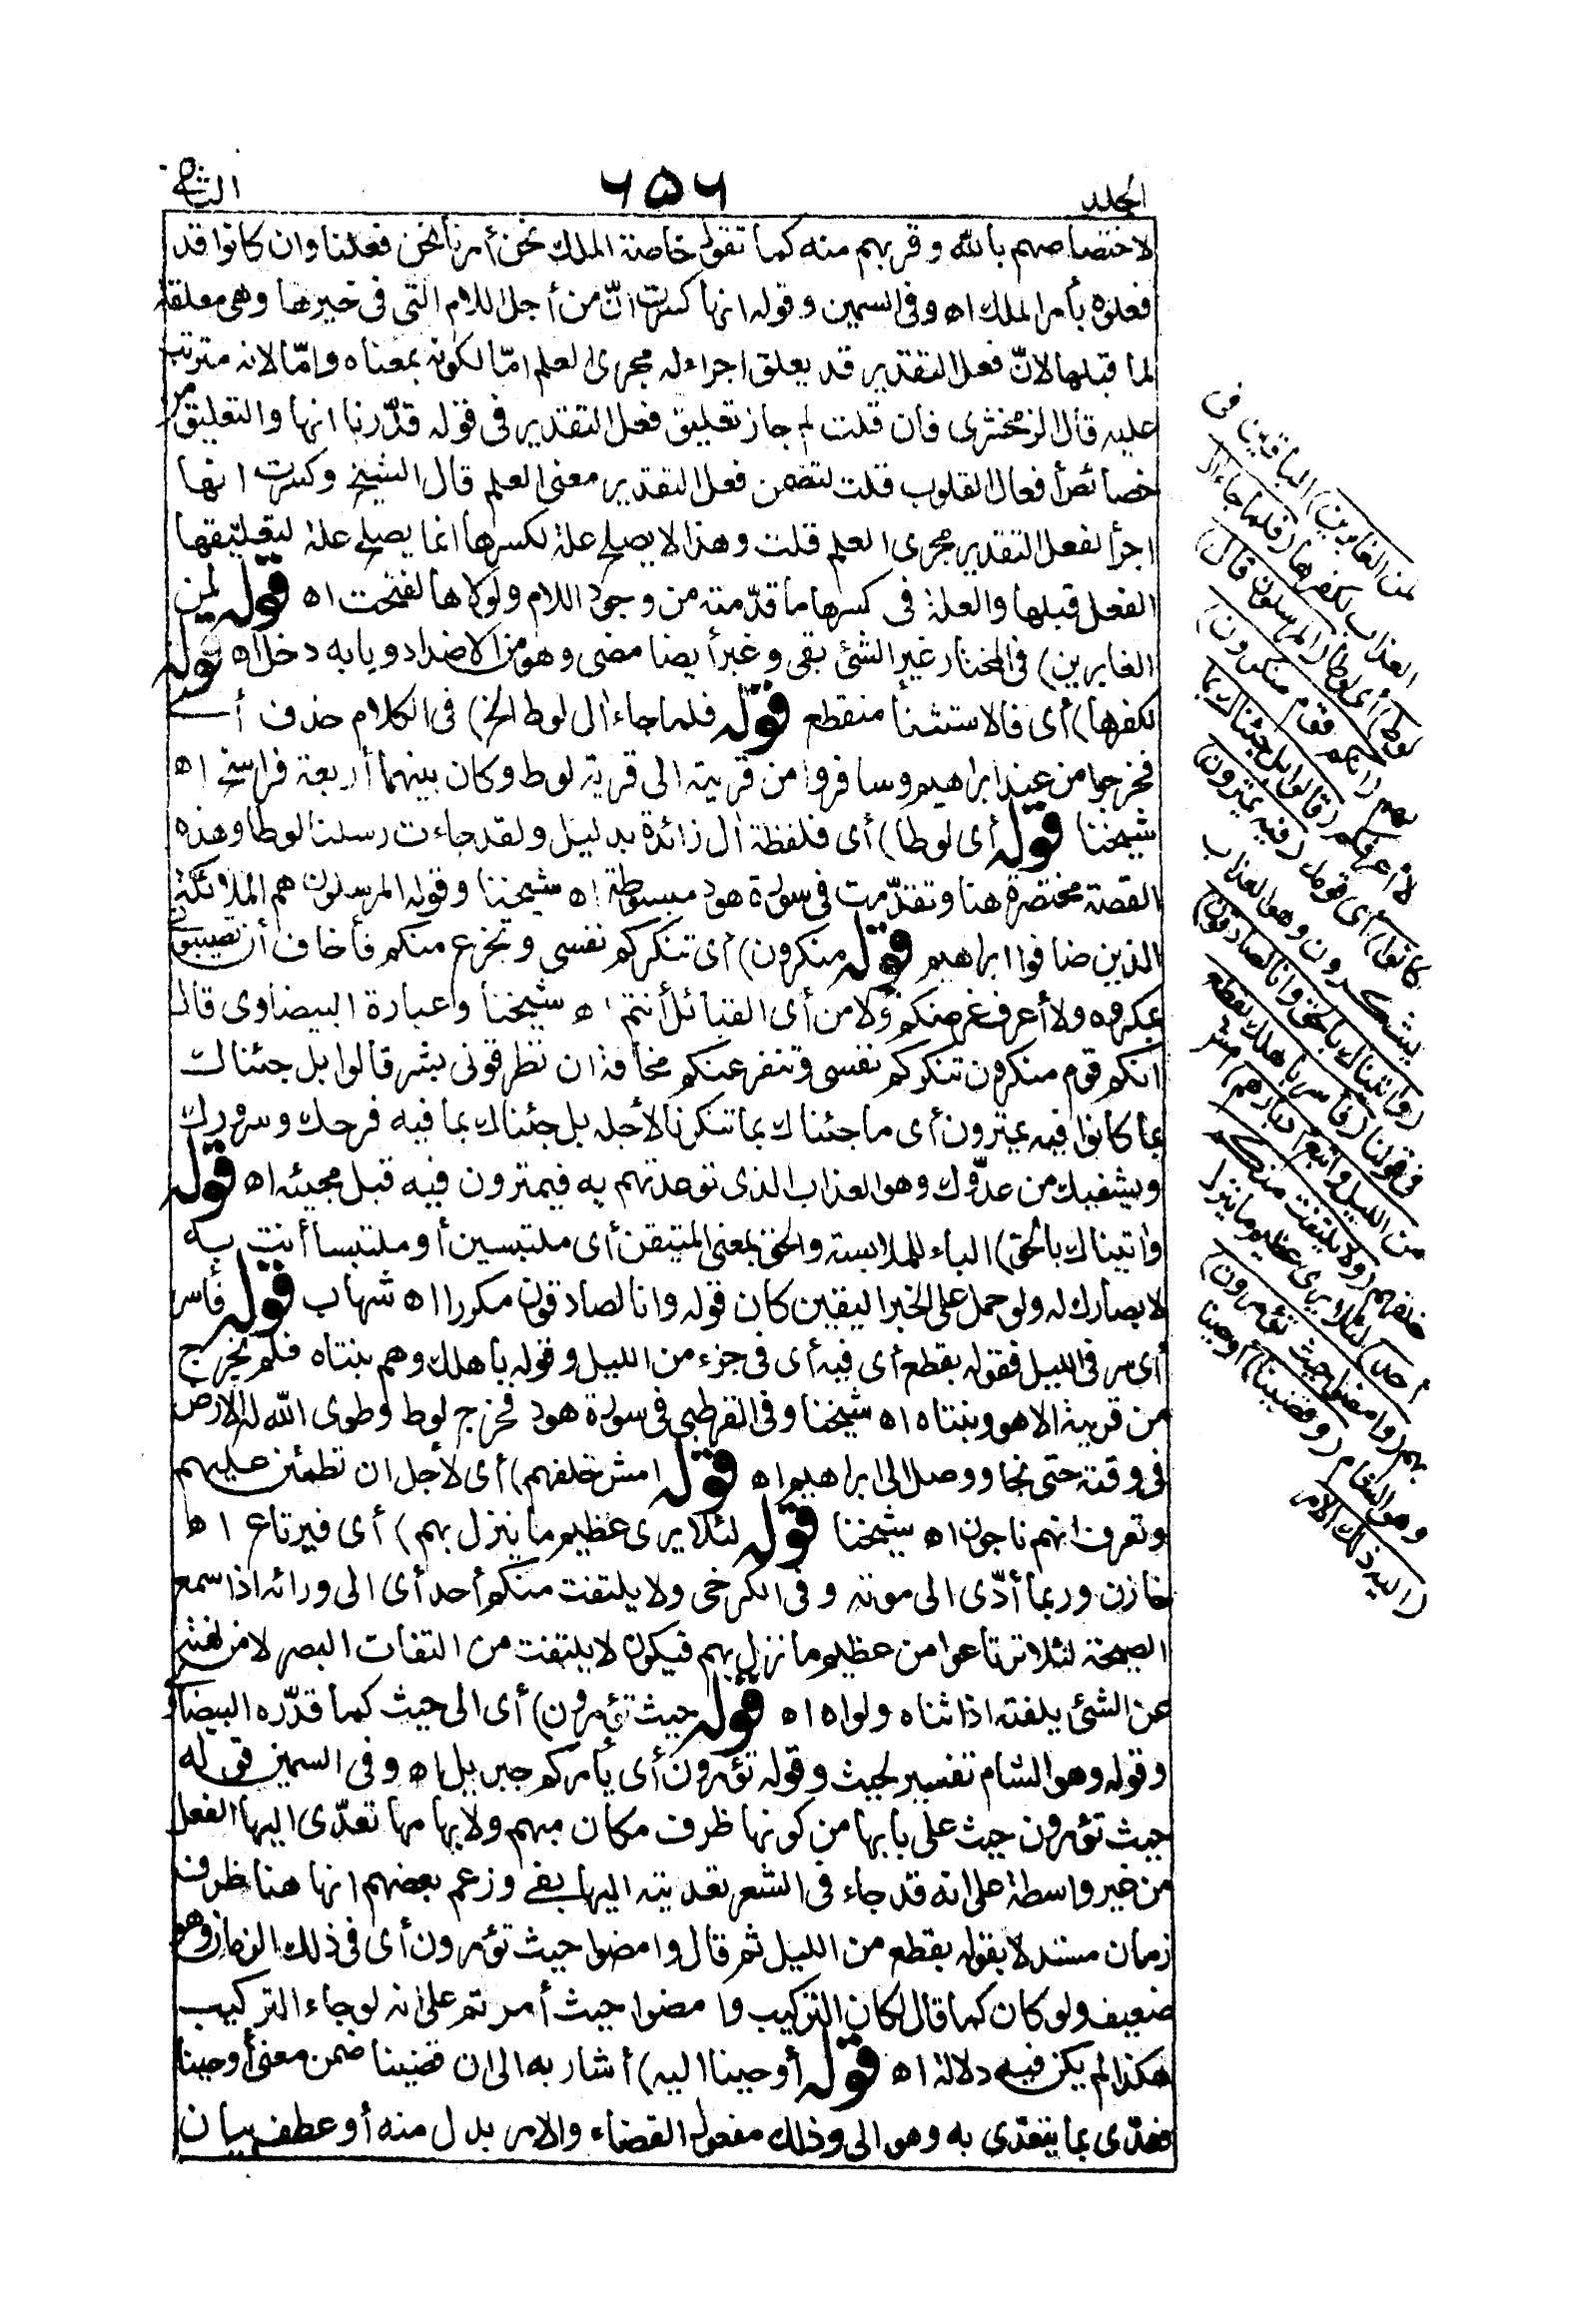 الجلد
٦٥٦
الثانى
لاختصاصهم بالله وقربهم منه كما تقول خاصة الملك نحن أمرنا نحن فعلنا وان كانوا قد
فعلوه بأمر الملك اه وفى السمين وقوله انها كسرت انّ من أجل اللام التى فى خبرها وهى معلقة
لما قبلها لانّ فعل التقدير قد يعلق اجراء له مجرى العلم امّا لكونه بمعناه وامّا لانه مترتب
عليه قال الزمخشرى فان قلت لم جاز تعليق فعل التقدير فى قوله قدّرنا انها والتعليق من
خصائص أفعال القلوب قلت لتضمن فعل التقدير معنى العلم قال الشيخ وكسرت انها
اجراً لفعل التقدير مجرى العلم قلت وهذا لا يصلح علة لكسرها انما يصلح علة لتعليقها
الفعل قبلها والعلة فى كسرها ما قدّمته من وجود اللام ولولاها لفتحت اه قوله لمن
الغابرين) فى المختار غبر الشئ بقى وغبر أيضا مضى وهو من الاضداد وبابه دخل اه قوله
لكفرها) أى فالاستثنأ منقطع قوله فلما جاء اٰل لوط الخ) فى الكلام حذف أى
فخرجوا من عند ابراهيم وسافروا من قريته الى قرية لوط وكان بينهما أربعة فراسخ اه
شيخنا قوله أى لوطا) أى فلفظة اٰل زائدة بدليل ولقد جاءت رسلنا لوطا وهذه
القصة مختصرة هنا وتقدّمت فى سورة هود مبسوطة اه شيخنا وقوله المرسلون هم الملائكة
الذين ضافوا ابراهيم قوله منكرون) أى تنكركم نفسى وتجزع منكم فأخاف أن تصيبونى
بمكروه ولا أعرف غرضكم ولا من أى القبائل أنتم اه شيخنا وعبارة البيضاوى قال
انكم قوم منكرون تنكركم نفسى وتنفر عنكم مخافة ان تطرقونى بشر قالوا بل جئناك
بما كانوا فيه يمترون أى ما جئناك بما تنكرنا لأجله بل جئناك بما فيه فرحك وسرورك
ويشفيك من عدّوك وهو العذاب الذى توعدتهم به فيمترون فيه قبل مجيئه اه قوله
واتيناك بالحق) الباء للملابسة والحق بمعنى المتيقن أى ملتبسين أو ملتبسا أنت به
لابصارك له ولو حمل على الخبر اليقين كان قوله وانا لصادقون مكررا اه شهاب قوله فأسر
أى سر فى الليل فقوله بقطع أى فيه أى فى جزء من الليل وقوله بأهلك وهم بنتاه فلم يخرج
من قريته الا هو وبنتاه اه شيخنا وفى القرطبى فى سورة هود فخرج لوط وطوى الله له الارض
فى وقته حتى نجا ووصل الى ابراهيم اه قوله امش خلفهم) أى لأجل ان تطمئن عليهم
وتعرف انهم ناجون اه شيخنا قوله لئلا يرى عظيم ما ينزل بهم) أى فيرتاع اه
خازن وربما أدّى الى موته وفى الكرخى ولا يلتفت منكم أحد أى الى ورائه اذا سمع
الصيحة لئلا ترتاعوا من عظيم ما نزل بهم فيكون لا يلتفت من التفات البصر لا من لفته
عن الشئ يلفته اذا ثناه ولواه اه قوله حيث تؤمرون) أى الى حيث كما قدّره البيضاوى
وقوله وهو الشام تفسير لحيث وقوله تؤمرون أى يأمركم جبريل اه وفى السمين قوله
حيث تؤمرون حيث على بابها من كونها ظرف مكان مبهم ولابهامها تعدّى اليها الفعل
من غير واسطة على انه قد جاء فى الشعر تعديته اليها بفى وزعم بعضهم انها هنا ظرف
زمان مستدلا بقوله بقطع من الليل ثم قال وامضوا حيث تؤمرون أى فى ذلك الزمان وهو
ضعيف ولو كان كما قال لكان التركيب وامضوا حيث أمرتم على انه لو جاء التركيب
هكذا لم يكن فيه دلالة اه قوله أوحينا اليه) أشار به الى ان قضينا ضمن معنى أوحينا
فعدّى بما يتعدّى به وهو الى وذلك مفعول القضاء والامر بدل منه أو عطف بيان
لمن الغابرين) الباقين فى
العذاب لكفرها (فلما جاء اٰل
لوط) أى لوطا (المرسلون قال)
لهم (انكم قوم منكرون)
لا أعرفكم (قالوا بل جئناك بما
كانوا) أى قومك (فيه يمترون)
يشكون وهو العذاب
(واتيناك بالحق وانا لصادقون)
فى قولنا (فأسر بأهلك بقطع
من الليل واتبع ادبارهم) امش
خلفهم (ولا يلتفت منكم
أحد) لئلا يرى عظيم ما ينزل
بهم (وامضوا حيث تؤمرون)
وهو الشام (وقضينا) أوحينا
(اليه ذلك الامر